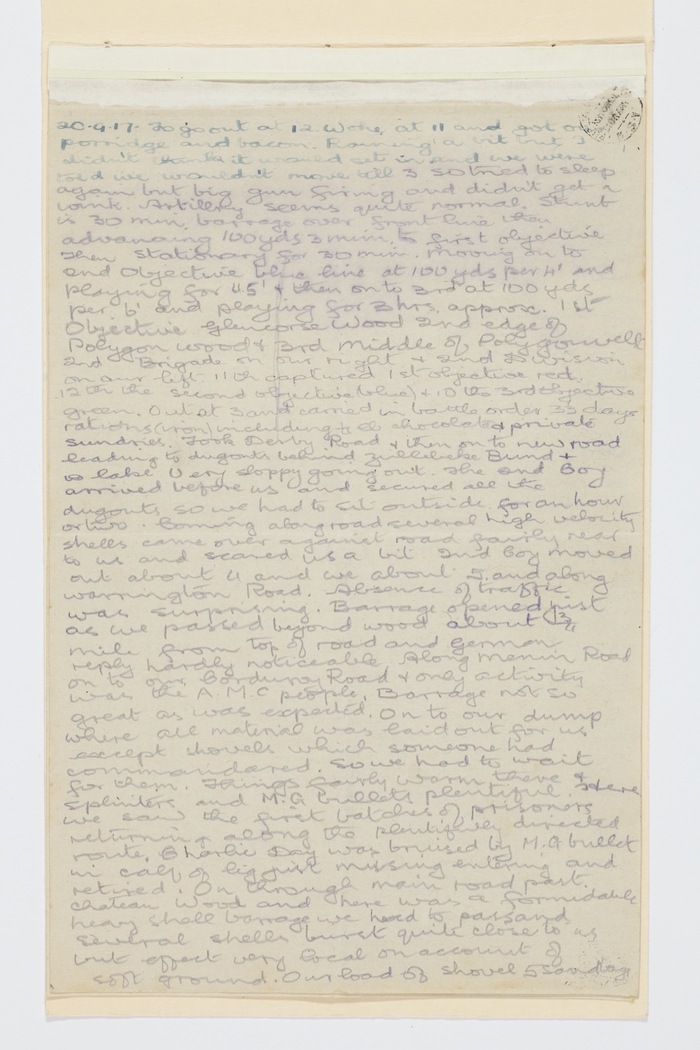 20.9.17. To go out at 12. Woke at 11 and got
porridge and bacon. Raining a bit but I
didn't think it would set in and we were
told we wouldn't move till 3 so tried to sleep
again but big gun firing and didn't get a
wink. Artillery seems quite normal. Stunt
is 30 min. barrage over front line then
advancing 100 yds 3 min. to first objective
then stationary for 30 min. moving on to
2nd Objective blue line at 100 yds per 4' and
playing for 45' & then on to 3rd at 100 yds
per 6' and playing for 3 hrs. approx. 1st
Objective Glencorse Wood 2nd edge of
Polygon wood & 3rd Middle of Polygon well
2nd Brigade on our right & 2nd Division
on our left. 11th captured 1st objective red.
12th the second objective (blue) & 10th 3rd objective
green. Out at 3 and carried in battle order 3 days
rations (iron) including chocolate & private
sundries. Took Derby Road & then on to new road
leading to dugouts behind Zillebeke Bund &
lake. Very sloppy going out. The 2nd Coy
arrived before us and secured all the
dugouts so we had to sit outside for an hour
or two. Coming along road several high velocity
shells came over against road fairly near
to us and scared us a bit. 2nd Coy moved
out about 4 and we about 5. and along
Warrington Road. Absence of traffic
was surprising. Barrage opened just
as we passed beyond wood about 3/4
mile from top of road and German
reply hardly noticeable. Along Menin Road
on to our Corduroy Road & only activity
was the A.M.C people. Barrage not so
great as was expected. On to our dump
where all material was laid out for us
except shovels which someone had
commandared. So we had to wait
for them. Things fairly warm there &
splinters and M.G bullets plentiful. Here
we saw the first batches of prisoners
returning along the plentifully directed
route. Charlie Day was bruised by M.G bullet
in calf of leg just missing entering and
retired. On through main road past
chateau Wood and here was a formidable
heavy shell barrage we had to pass and
several shells burst quite close to us
but effect very local on account of
soft ground. Our load of shovel 5 sandbags